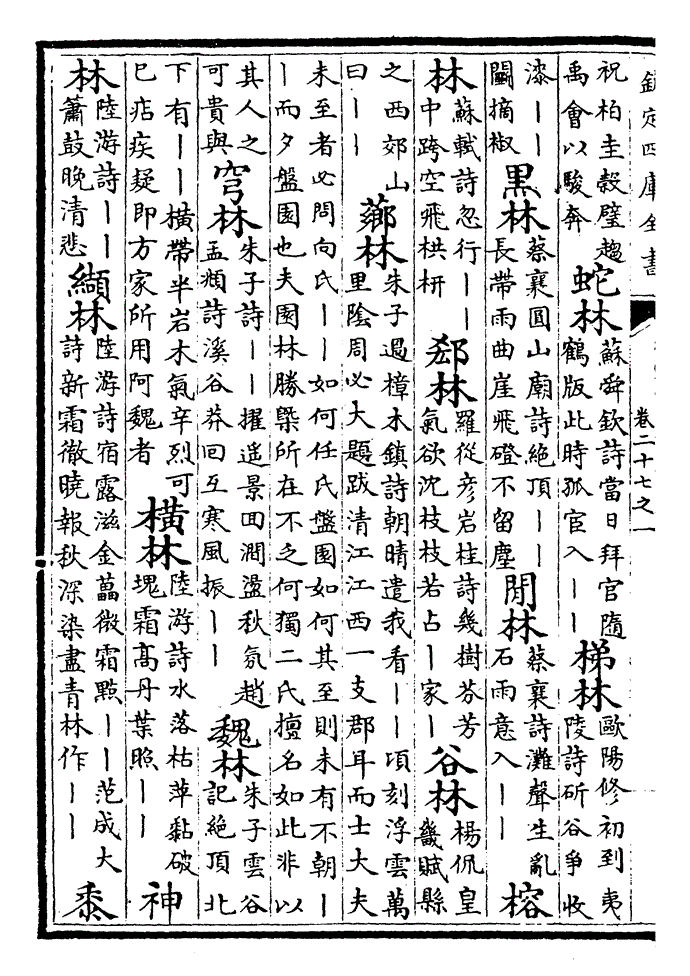 欽定四庫全書
卷二十七之一
祝柏圭穀璧趨
禹會以駿奔
蛇林
蘇舜欽詩當日拜官隨
鶴版此時孤宦入丨丨
梯林
歐陽修初到夷
陵詩斫谷爭收
漆丨丨
闘摘椒
黒林
蔡襄圓山廟詩絶頂丨丨
長帶雨曲崖飛磴不留塵
閒林
蔡襄詩灘聲生亂
石雨意入丨丨
榕
林
蘇軾詩忽行丨丨
中跨空飛栱枅
郄林
羅從彦岩桂詩幾樹芬芳
氣欲沈枝枝若占丨家丨
谷林
楊侃皇
畿賦縣
之西郊山
曰丨丨
薌林
朱子過樟木鎮詩朝晴遣我看丨丨頃刻浮雲萬
里陰周必大題跋清江江西一支郡耳而士大夫
未至者必問向氏丨丨如何任氏盤園如何其至則未有不朝丨
丨而夕盤園也夫園林勝槩所在不乏何獨二氏擅名如此非以
其人之
可貴與
穹林
朱子詩丨丨擢遥景回澗盪秋氛趙
孟頫詩溪谷莽回互寒風振丨丨
魏林
朱子雲谷
記絶頂北
下有丨丨橫帶半岩木氣辛烈可
已痁疾疑即方家所用阿魏者
橫林
陸游詩水落枯萍黏破
塊霜高丹葉照丨丨
神
林
陸游詩丨丨
簫鼓晚清悲
纈林
陸游詩宿露滋金蕌微霜㸃丨丨范成大
詩新霜徹曉報秋深染盡青林作丨丨
黍